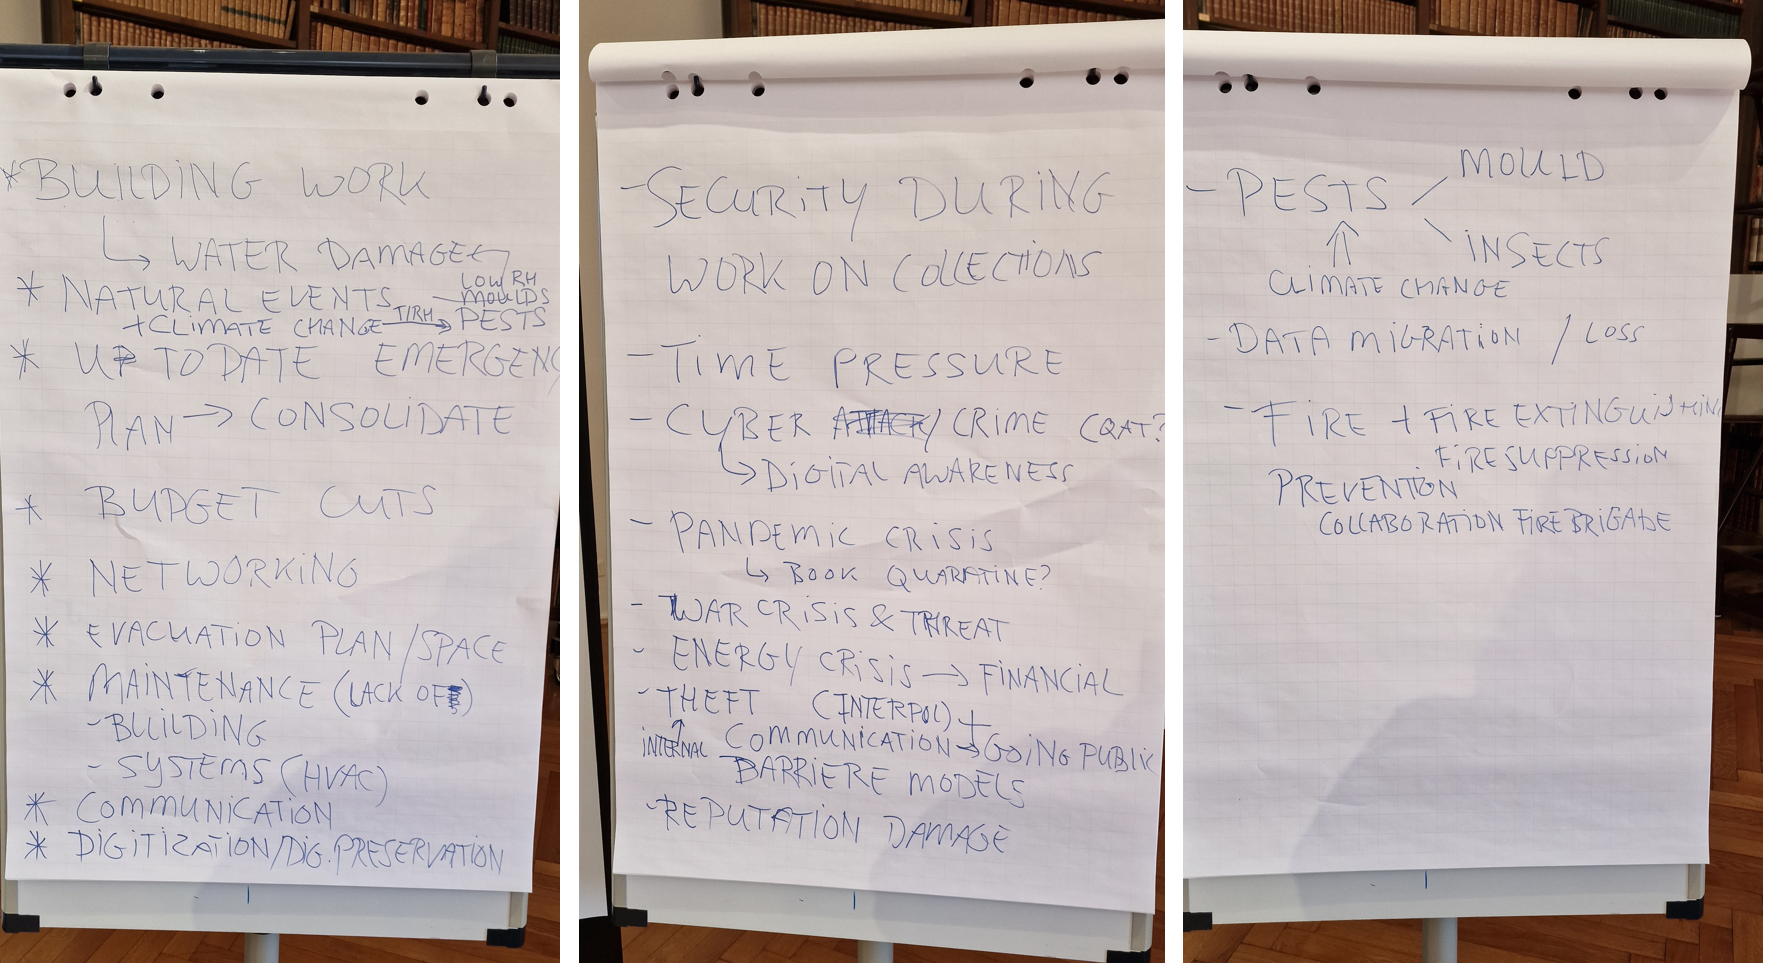 * BUILDING WORK
↳ WATER DAMAGE ←
LOW RH
* NATURAL EVENTS — MOULDS
+ CLIMATE CHANGE T/RH → PESTS
* UP TO DATE EMERGENC
PLAN → CONSOLIDATE
* BUDGET CUTS
* NETWORKING
* EVACUATION PLAN/SPACE
* MAINTENANCE (LACK OF)
- BUILDING
- SYSTEMS (HVAC)
* COMMUNICATION
* DIGITIZATION/DIG. PRESERVATION
- SECURITY DURING
WORK ON COLLECTIONS
- TIME PRESSURE
- CYBER ATTACK/CRIME (QAT?
↳ DIGITAL AWARENESS
- PANDEMIC CRISIS
↳ BOOK QUARATINE?
- WAR CRISIS & THREAT
- ENERGY CRISIS → FINANCIAL
- THEFT (INTERPOL) +
↑
INTERNAL COMMUNICATION → GOING PUBLIC
BARRIERE MODELS
- REPUTATION DAMAGE
MOULD
- PESTS
INSECTS
↑
CLIMATE CHANGE
- DATA MIGRATION / LOSS
- FIRE + FIRE EXTINGUISHING
FIRESUPPRESSION
PREVENTION
COLLABORATION FIREBRIGADE